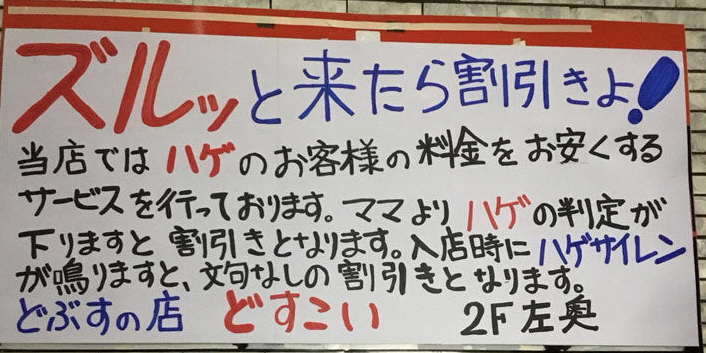 ズルッと来たら割引きよ!
当店では ハゲのお客様の料金をお安くする
サービスを行っております。ママより ハゲの判定が
下りますと 割引きとなります。入店時に ハゲサイレン
が鳴りますと、文句なしの割引きとなります。
どぶすの店 どすこい 2F左奥